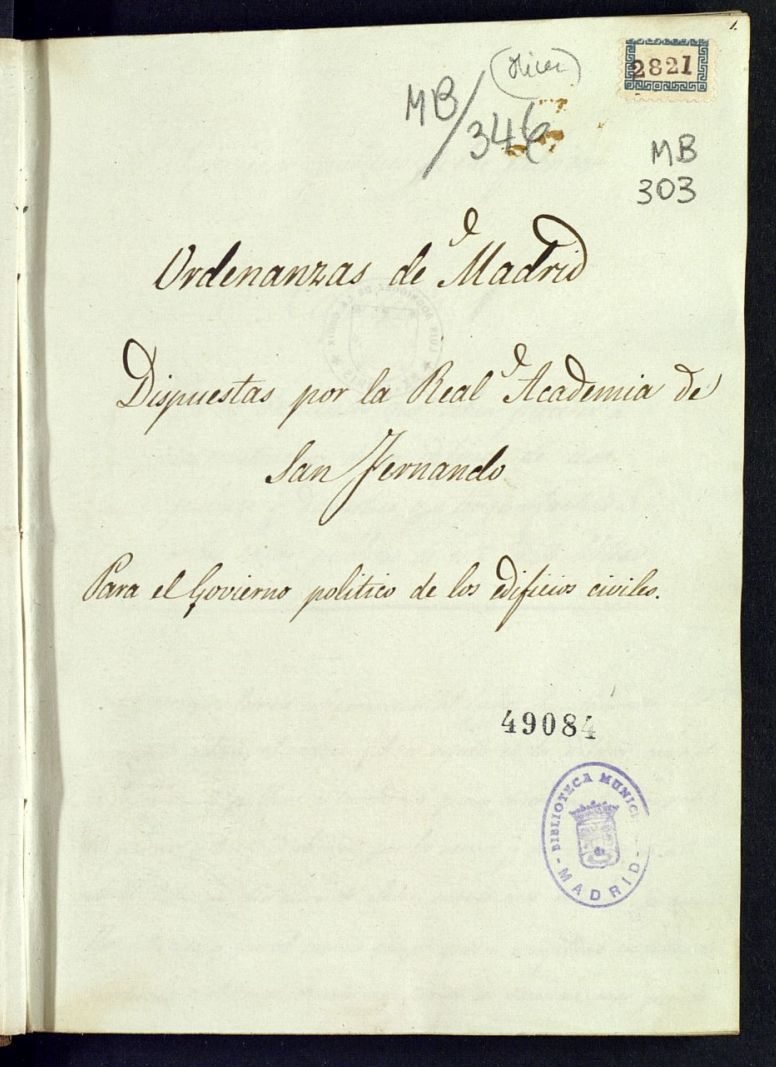 1.
2821
MB/346
MB
303
Ordenanzas de Madrid
Dispuestas por la Real Academia de
San Fernando
Para el Govierno politico de los edificios civiles.
49084
BIBLIOTECA MUNIC
- MADRID -